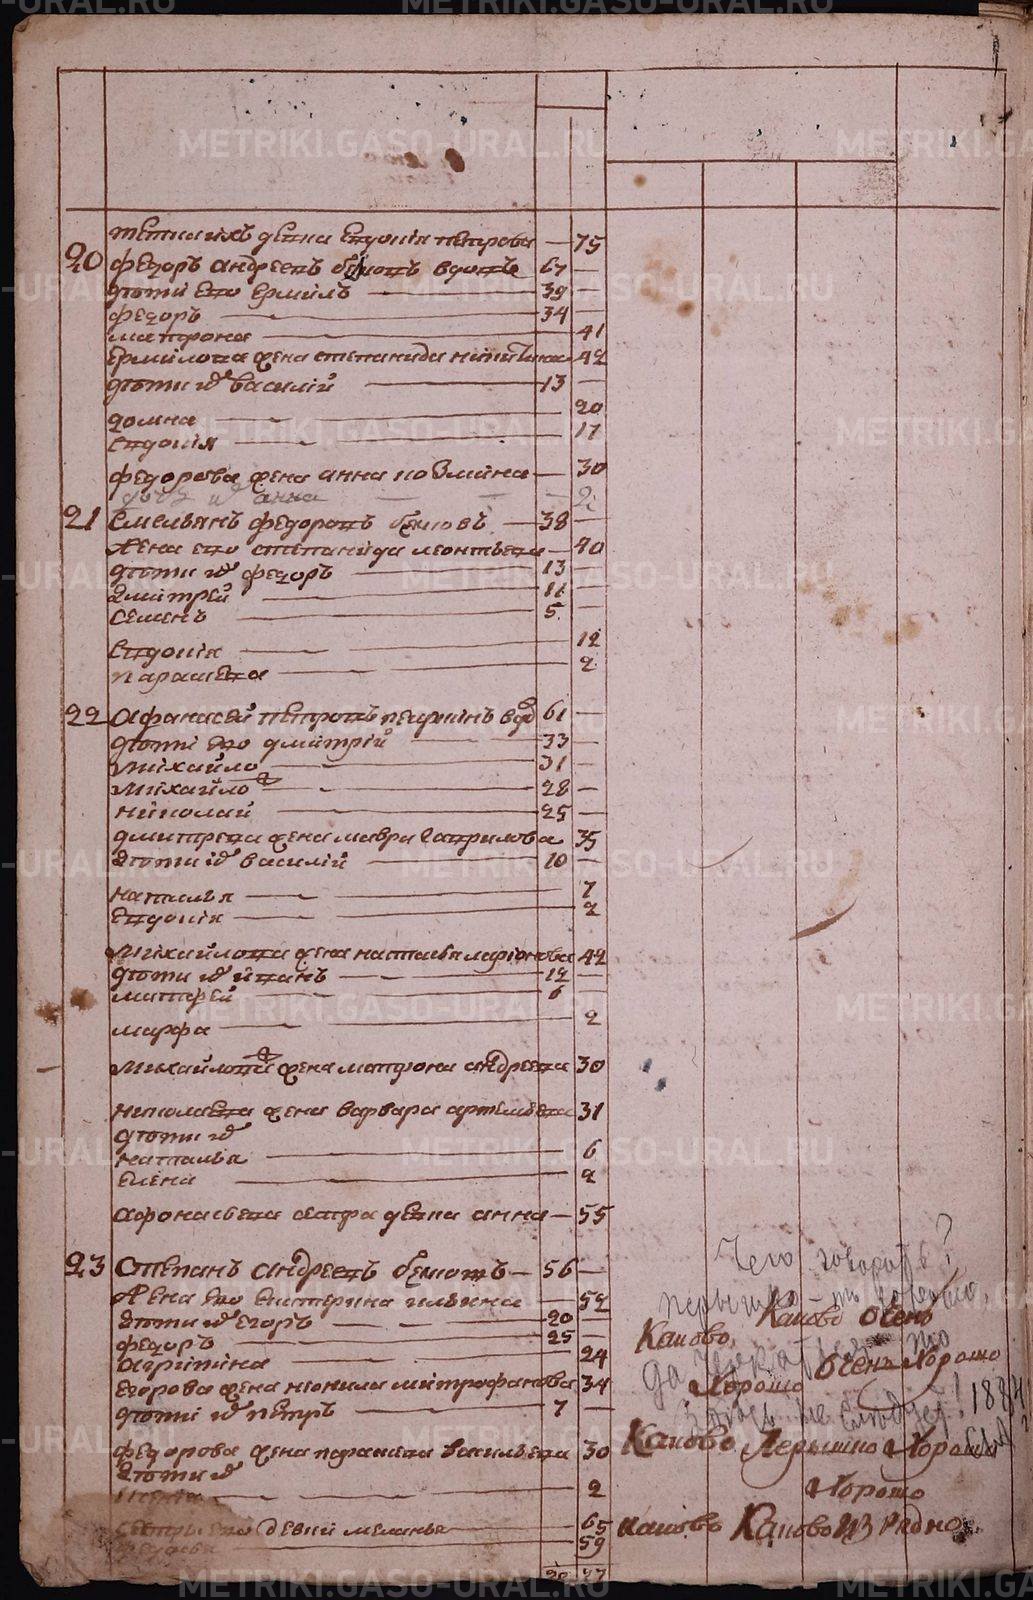 METRIKI.GASO-URAL.RU
тетка ихъ девка Евдокія петрова — 75
20 федоръ андреевъ вдовъ 67 —
дѣти его Ермилъ — 39 —
федоръ — 34 —
матрона — 41
Ермилова жена степанида 42
дѣти их василій — 13 —
домна — 20
Евдокія — 17
федорова жена анна козмина — 30
дочь их анна — 2
21 Емельянъ федоровъ — 38 —
жена его степанида леонтьева — 40
дѣти их федоръ — 13 —
дмитрей — 11 —
семенъ — 5 —
Евдокія — 12
парасковья — 2
22 Афанасей петровъ вдов 61 —
дѣти его дмитрій — 33 —
михайло — 31 —
михайло 2й — 28 —
николай — 25 —
дмитрева жена мавра гаврилова 35
дѣти их василій — 10 —
наталья — 7
Евдокія — 2
михайлова жена наталья ларіонова 42
дѣти их иванъ — 12 —
матфей — 6 —
марфа — 2
михайлова 2 жена матрона андреева 30
николаева жена варвара артемьева 31
дѣти их
наталья — 6
елена — 2
афонасьева сестра девка анна — 55
23 Степанъ андреевъ — 56 —
жена его екатерина ильина — 52
дѣти их егоръ — 20 —
федоръ — 25 —
агрипина — 24
Егорова жена неонила митрофанова 34
дѣти их петръ — 7 —
федорова жена парасковья васильева 30
дѣти их
— 2
сестры его девки меланья — 65
— 59
27
Чего говорить?
перышко-то
Каково очень
Каково,
да
очень хорошо
Хорошо
не следует! 1884
Каково Перышко Хорошо
Хорошо
каково Каково изрядно